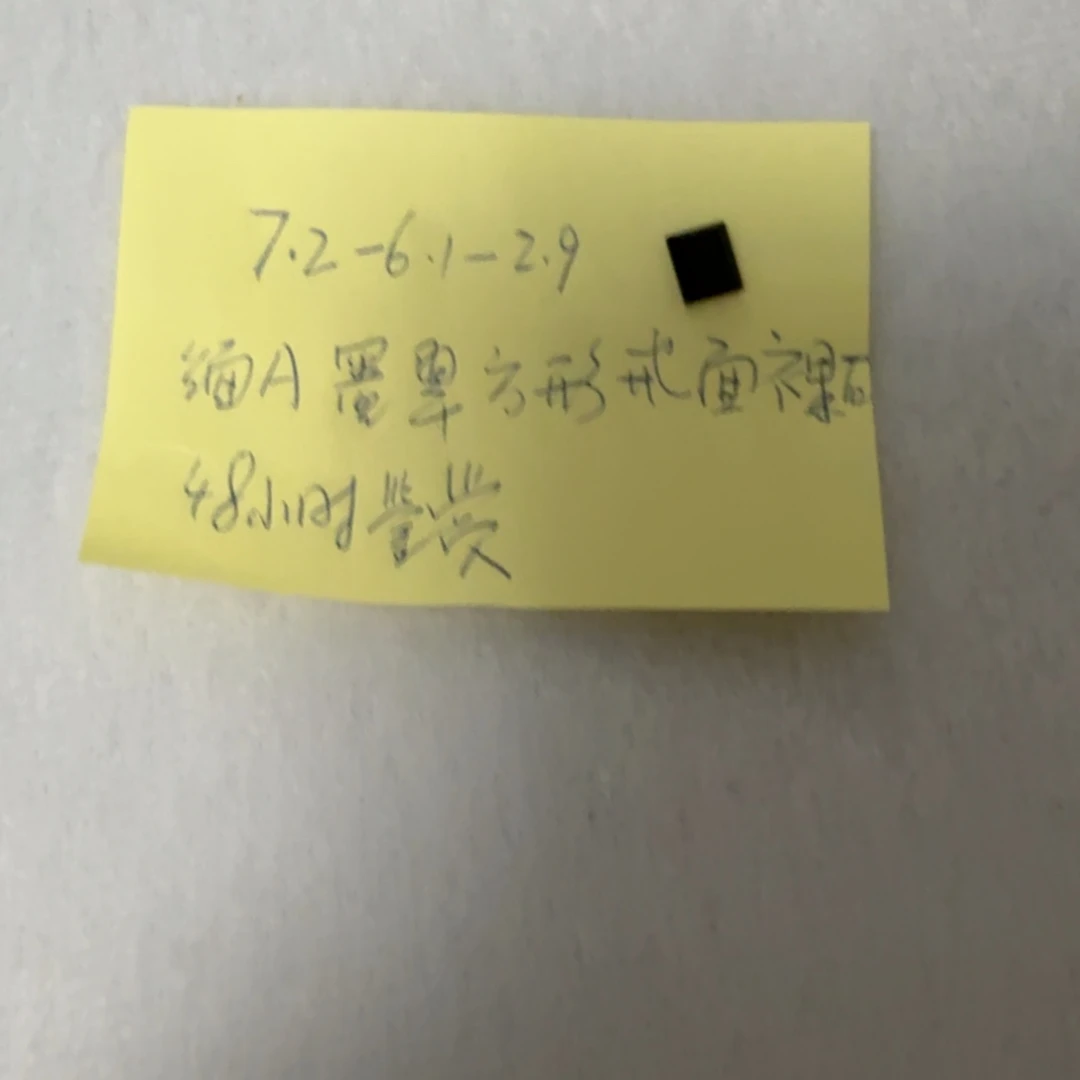 7.2-6.1-2.9
缅A 墨翠方形戒面裸石
48小时鉴赏